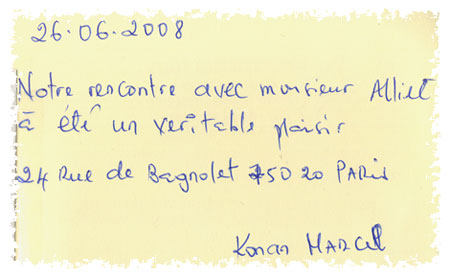 26.06.2008
Notre rencontre avec monsieur Alliet
à été un veritable plaisir
24 Rue de Bagnolet 75020 PARIS
Konan MARCEL